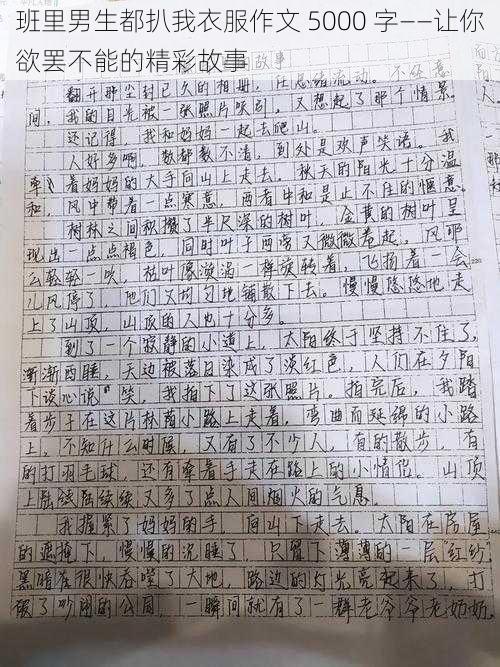 班里男生都扒我衣服作文 5000 字——让你
欲罢不能的精彩故事
故事
翻开那尘封已久的相册,任思绪流动。不经意
间,我的目光被一张照片吸引,又想起了那个情景。
还记得,我和妈妈一起去爬山。
人好多啊,数都数不清,到处是欢声笑语。我
牵着妈妈的大手向山上走去,秋天的阳光十分温
和,风中带着一点寒意,两者中和是止不住的惬意。
树林之间积攒了半尺深的树叶,金黄的树叶呈
现出一点点褐色,同时叶子两旁又微微卷起,风那
么轻轻一吹,枯叶像漩涡一样旋转着,飞扬着一会
儿风停了,他们又均匀地铺散下去。慢慢悠悠地走
上了山顶,山顶的人也十分多。
到了一个寂静的小道上,太阳终于坚持不住了,
渐渐西睡,天边被落日染成了淡红色,人们在夕阳
下谈心说笑,我拍下了这张照片。拍完后,我踏
着步子在这片林荫小路上走着,弯曲而延绵的小路
上,不知什么时候,又有了不少人,有的散步,有
的打羽毛球,还有牵着手走在路上的小情侣。山顶
上陆续陆续续又多了点人间烟火的气息。
我握紧了妈妈的手,向山下走去。太阳在房屋
的遮掩下,慢慢的沉睡了,只留下薄薄的一层"红纱"
黑暗在很快吞噬了大地,路边的灯光亮起来了,打
破了吵闹的公园,一瞬间就有了一群老爷爷老奶奶。